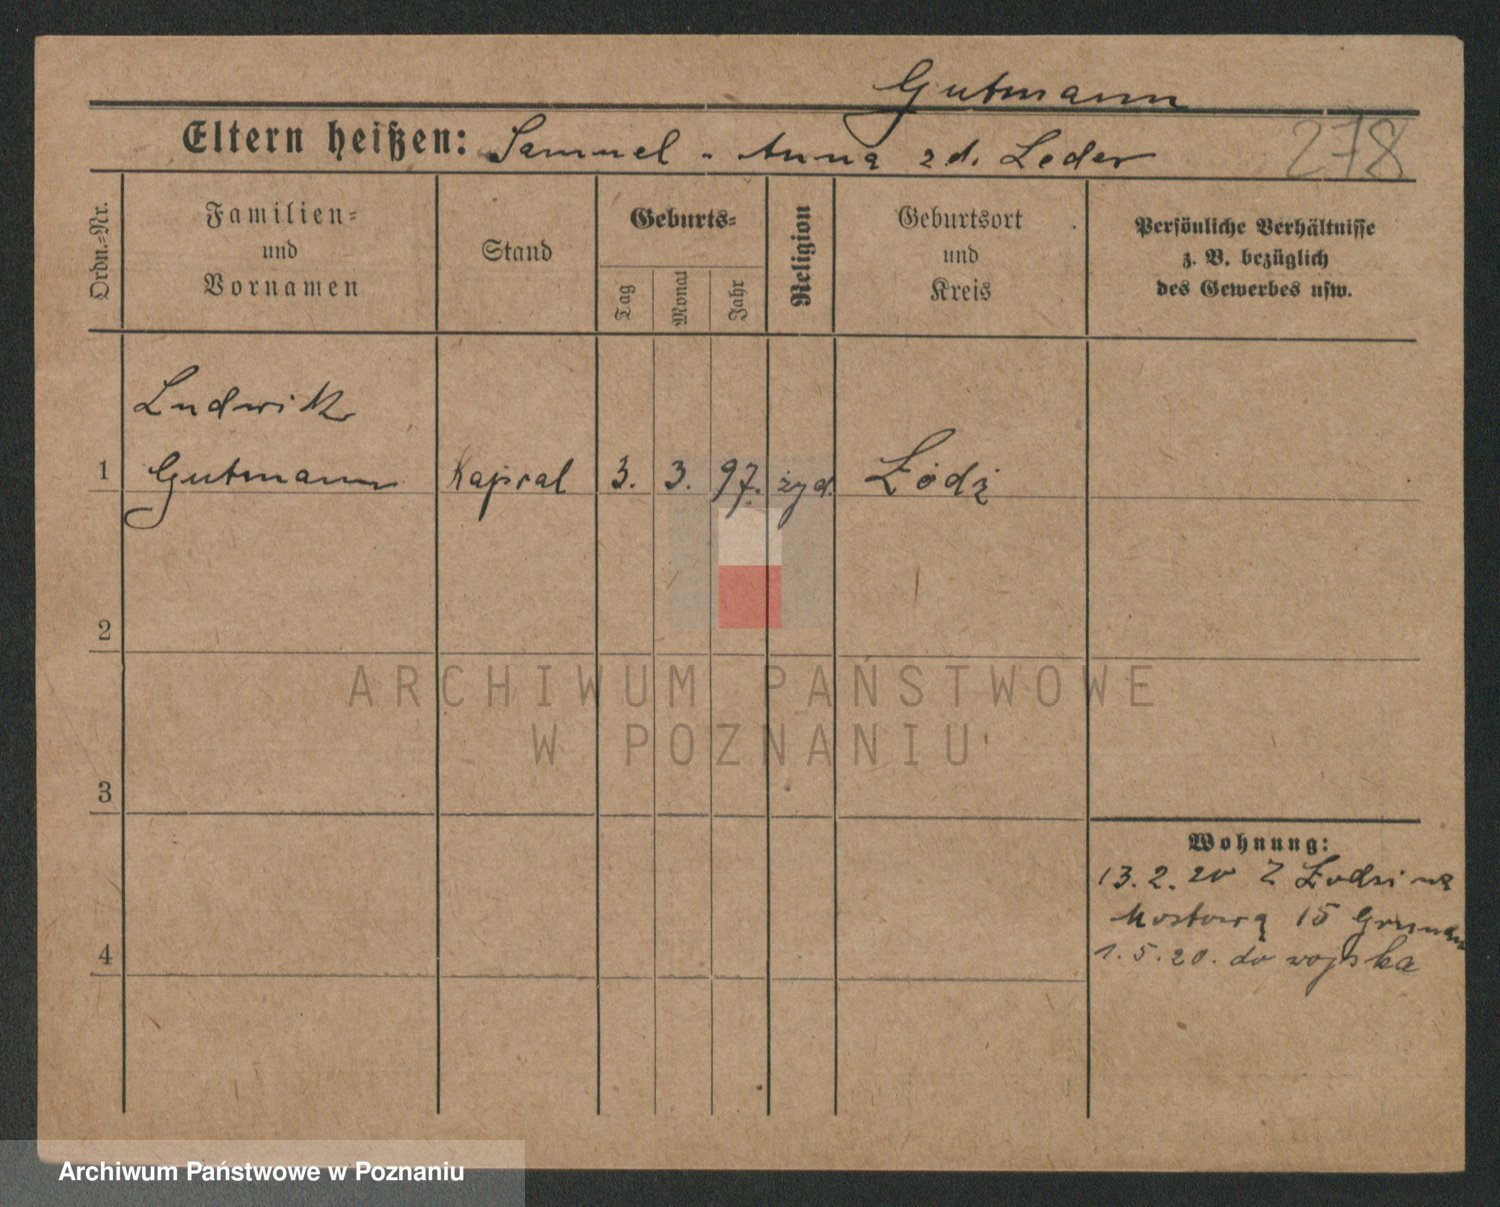 Gutmann
Eltern heißen: Samuel - Anna zd. Leder 278
Ordn.-Nr.
Familien-
und
Vornamen
Stand
Geburts-
Tag
Monat
Jahr
Religion
Geburtsort
und
Kreis
Persönliche Verhältnisse
z. B. bezüglich
des Gewerbes usw.
Ludwik
1 Gutmann Kapral 3. 3. 97. żyd. Łódź
2
3
4
Wohnung:
13.2.20 Z Łodzi na
Mostową 15
1.5.20. do wojska
ARCHIWUM PAŃSTWOWE
W POZNANIU
Archiwum Państwowe w Poznaniu